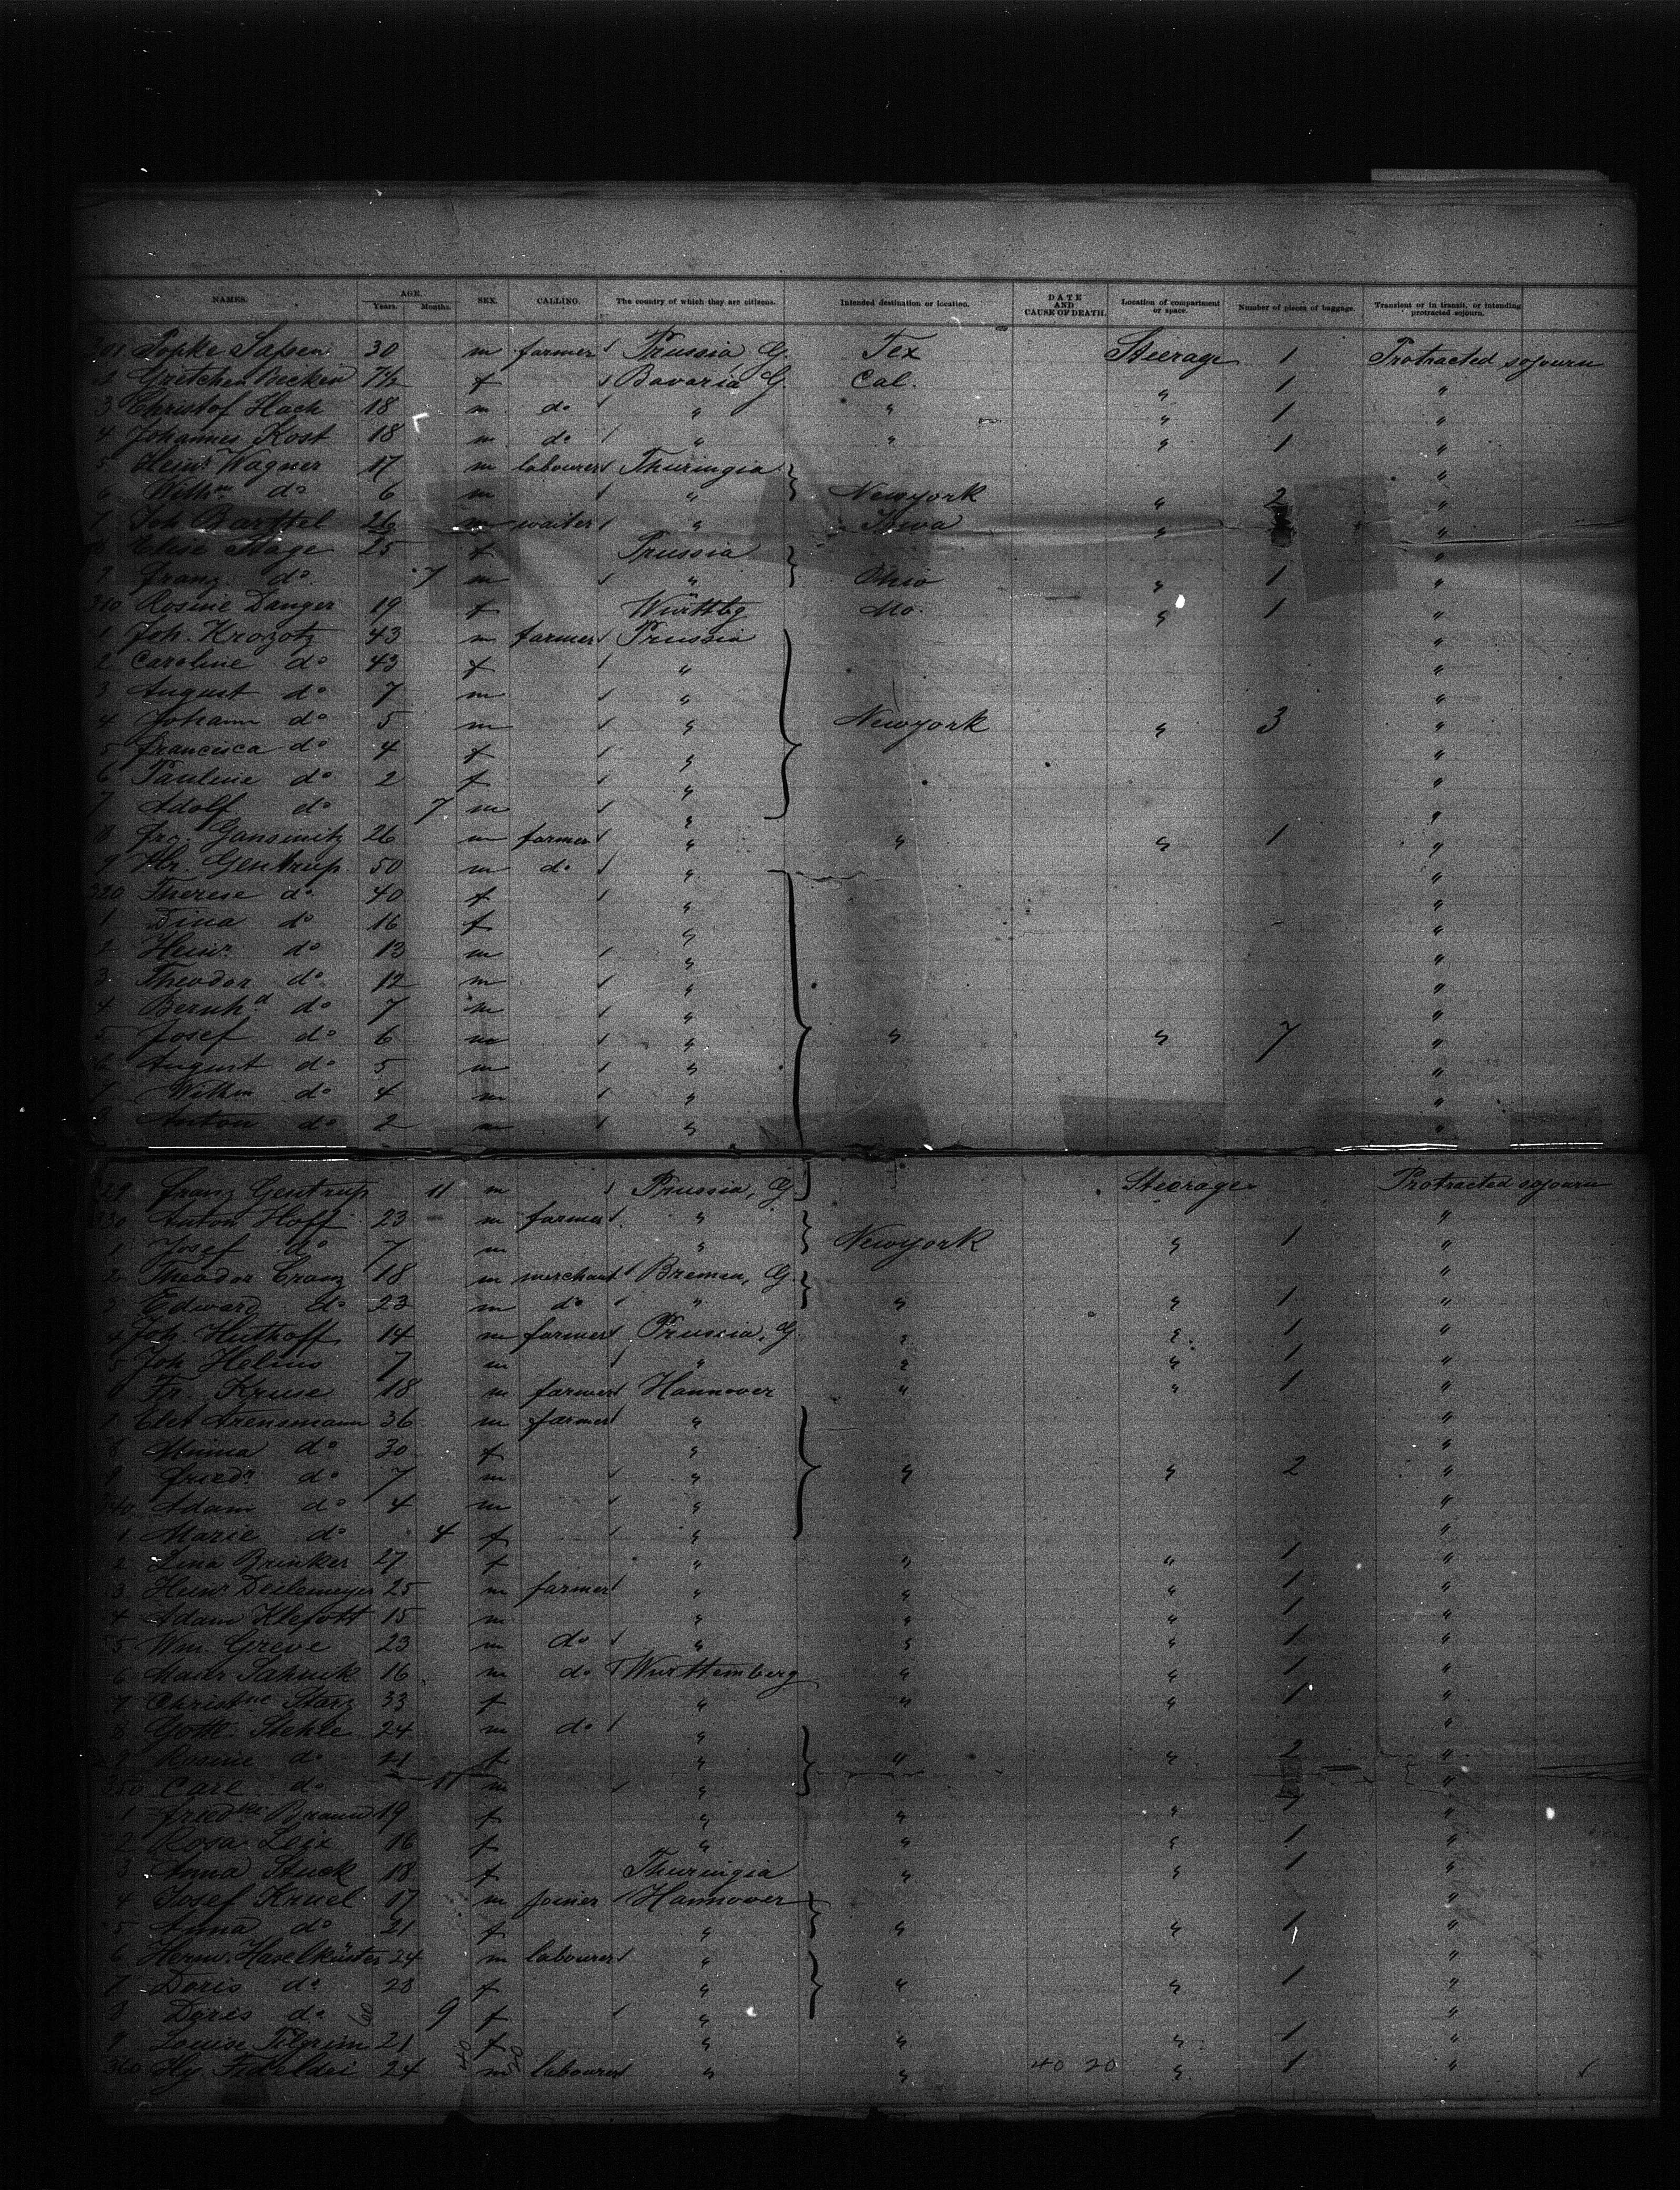 NAMES. AGE. Years. Months. SEX. CALLING. The country of which they are citizens. Intended destination or location. DATE AND CAUSE OF DEATH. Location of compartment or space. Number of pieces of baggage. Transient or in transit, or intending protracted sojourn.
301 Popke 30 m farmer Prussia G. Tex Steerage 1 Protracted sojourn
2 Gretchen 7½ f Bavaria G. Cal. " 1 "
3 Christof Hach 18 m do " " " 1 "
4 Johannes Kost 18 m do " " " 1 "
5 Heinr. Wagner 17 m labourer Thuringia "
6 Wilhm do 6 m " Newyork " 2 "
7 Joh. Barthel 26 m waiter " Iowa " "
8 Elise Stage 25 f Prussia "
9 Franz do 7 m " Ohio " 1 "
310 Rosine Danger 19 f Württbg Mo. " 1 "
1 Joh. Krozotz 43 m farmer Prussia "
2 Caroline do 43 f " "
3 August do 7 m " "
4 Johann do 5 m " Newyork " 3 "
5 Francisca do 4 f " "
6 Pauline do 2 f " "
7 Adolf do 7 m " "
8 Frz. 26 m farmer " " " 1 "
9 Hr. Gentrup 50 m do " "
320 Therese do 40 f " "
1 Dina do 16 f " "
2 Heinr. do 13 m " "
3 Theodor do 12 m " "
4 Bernhd do 7 m " "
5 Josef do 6 m " " " 7 "
6 August do 5 m " "
7 Wilhm do 4 m " "
8 Anton do 2 m " "
29 Franz Gentrup 11 m Prussia, G. Steerage Protracted sojourn
330 Anton Hoff 23 m farmer " "
1 Josef do 7 m " Newyork " 1 "
2 Theodor Cranz 18 m merchant Bremen, G. "
3 Edward do 23 m do " " " 1 "
4 Joh. Huthoff 14 m farmer Prussia, G. " " 1 "
5 Joh. Helms 7 m " " " 1 "
6 Fr. Kruse 18 m farmer Hannover " " 1 "
7 Clet Arensmann 36 m farmer " "
8 Minna do 30 f " "
9 Friedr. do 7 m " " " 2 "
340 Adam do 4 m " "
1 Marie do 4 f " "
2 Lina Brinker 27 f " " " 1 "
3 Heinr. Deilemeyer 25 m farmer " " " 1 "
4 Adam Klefott 15 m " " " 1 "
5 Wm. Greve 23 m do " " " 1 "
6 16 m do Wurttemberg " " 1 "
7 Christne Starz 33 f " " " 1 "
8 Gottl. Stehle 24 m do " "
9 Rosine do 21 f " " " 2 "
350 Carl do 11 m " "
1 Friedke Braun 19 f " " " 1 "
2 Rosa Leix 16 f " " " 1 "
3 Anna Stuck 18 f Thuringia " " 1 "
4 Josef Kruel 17 m joiner Hannover "
5 Anna do 21 f " " " 1 "
6 Herm. Haselküster 24 m labourer " "
7 Doris do 28 f " " " 1 "
8 Dores do 9 f " "
9 Louise Pilgrim 21 f " " " 1 "
360 Hy. 24 m labourer " " 40 20 " 1 "